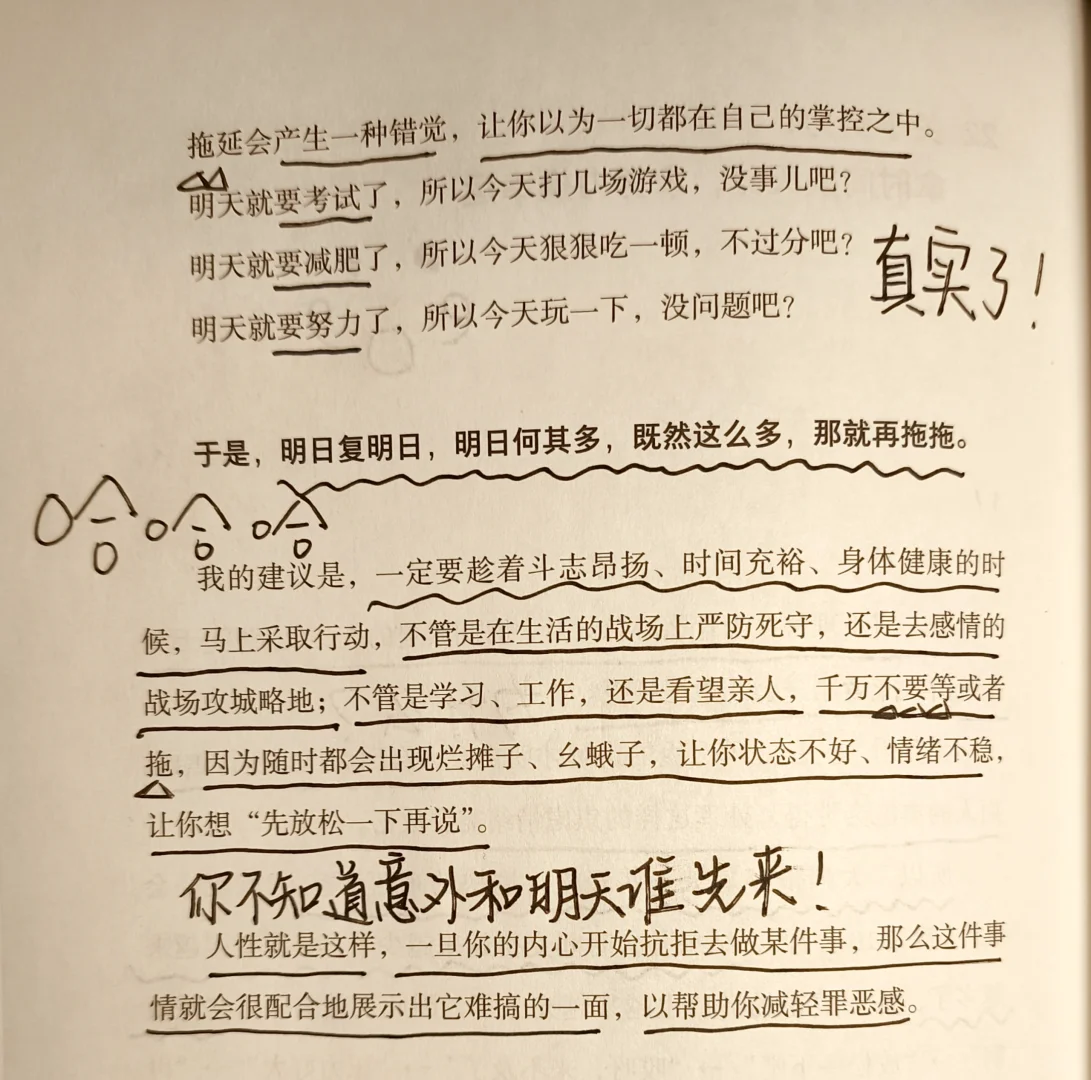 拖延会产生一种错觉，让你以为一切都在自己的掌控之中。
明天就要考试了，所以今天打几场游戏，没事儿吧？
明天就要减肥了，所以今天狠狠吃一顿，不过分吧？
真实了！
明天就要努力了，所以今天玩一下，没问题吧？
于是，明日复明日，明日何其多，既然这么多，那就再拖拖。
哈哈哈
我的建议是，一定要趁着斗志昂扬、时间充裕、身体健康的时
候，马上采取行动，不管是在生活的战场上严防死守，还是去感情的
战场攻城略地；不管是学习、工作，还是看望亲人，千万不要等或者
拖，因为随时都会出现烂摊子、幺蛾子，让你状态不好、情绪不稳，
让你想“先放松一下再说”。
你不知道意外和明天谁先来！
人性就是这样，一旦你的内心开始抗拒去做某件事，那么这件事
情就会很配合地展示出它难搞的一面，以帮助你减轻罪恶感。